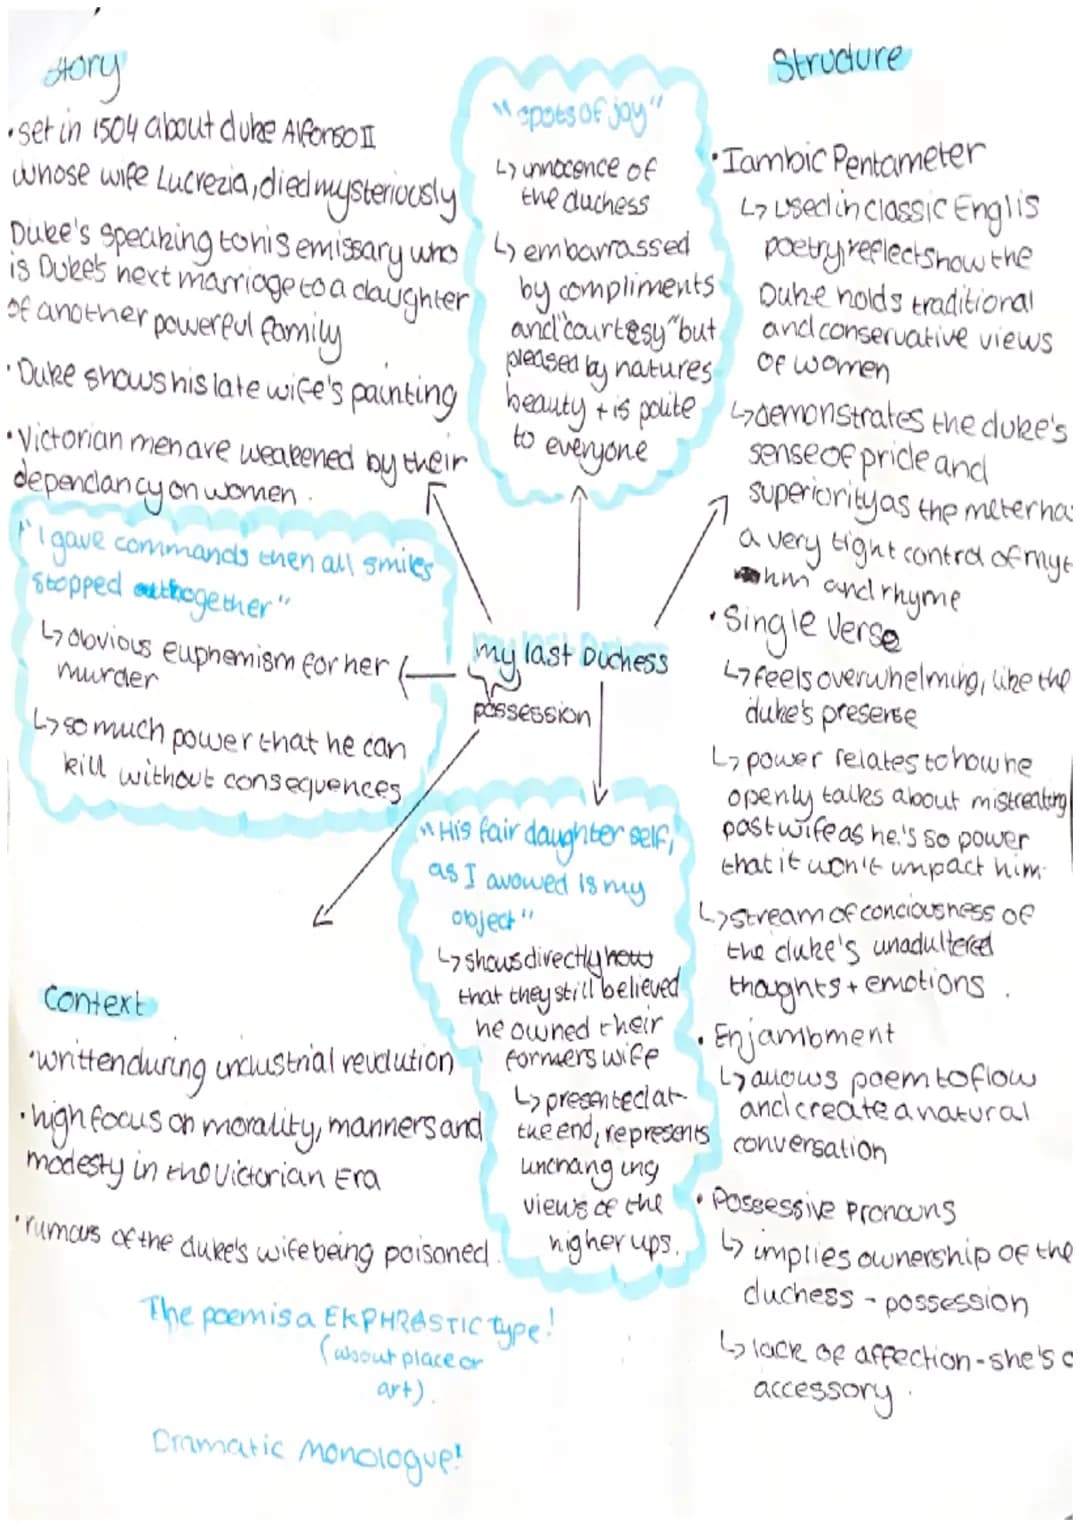 Story
• set in 1504 about duke Alfonso II
whose wife Lucrezia, died mysteriously
Duke's speaking to his emissary who
is Duke's next marriage to a daughter
of another powerful family
• Duke shows his late wife's painting
• Victorian men are weakened by their
dependancy on women.
"I gave commands then all smiles
stopped althogether"
↳ obvious euphemism for her
murder
↳ so much power that he can
kill without consequences
"spots of joy"
↳ innocence of
the duchess
↳ embarrassed
by compliments
and "courtesy" but
pleased by natures
beauty + is polite
to everyone
my last Duchess
possession
"His fair daughter self,
as I avowed is my
object"
↳ shows directly how
that they still believed
he owned their
formers wife
↳ presented at
the end, represents
unchanging
views of the
higher ups.
Context
• written during industrial revolution
• high focus on morality, manners and
modesty in the Victorian Era
• rumours of the duke's wife being poisoned.
The poem is a EKPHRASTIC type!
(about place or
art).
Dramatic Monologue!
Structure
• Iambic Pentameter
↳ used in classic Englis
poetry, reflects how the
Duke holds traditional
and conservative views
of women
↳ demonstrates the duke's
sense of pride and
superiority as the meter ha
a very tight control of ryt
hm and rhyme
• Single Verse
↳ feels overwhelming, like the
duke's presense
↳ power relates to how he
openly talks about mistreating
past wife as he's so power
that it won't impact him.
↳ stream of conciousness of
the duke's unadultered
thoughts + emotions.
• Enjambment
↳ allows poem to flow
and create a natural
conversation
• Possessive Pronouns
↳ implies ownership of the
duchess - possession
↳ lack of affection - she's a
accessory.